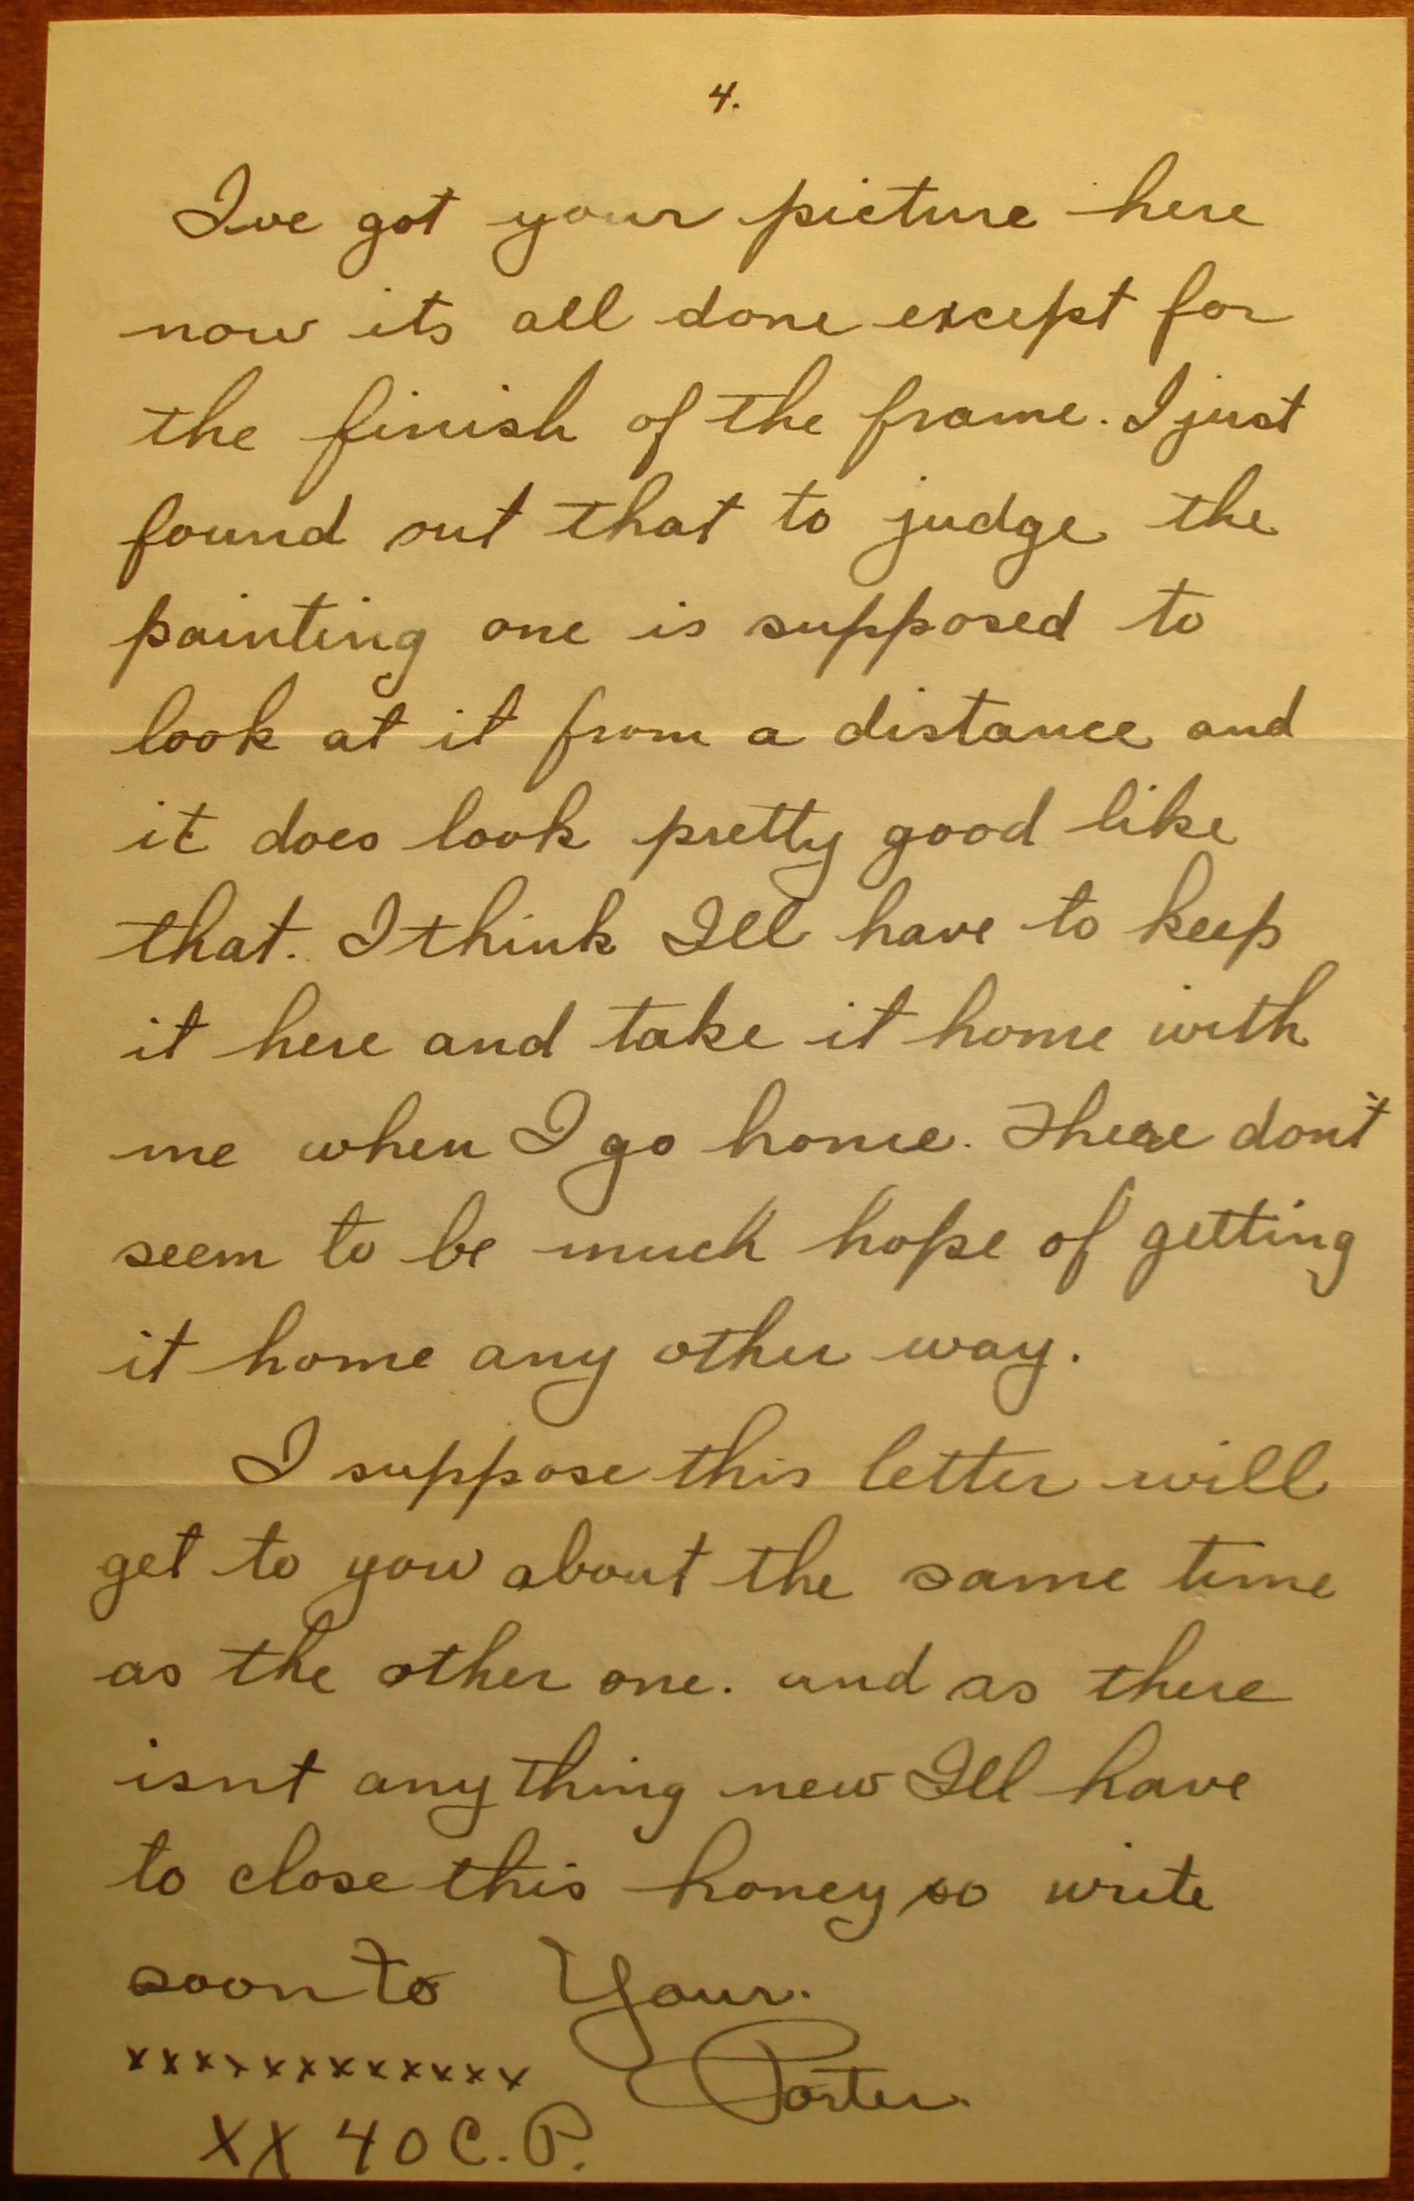 4.
Ive got your picture here
now its all done except for
the finish of the frame. I just
found out that to judge the
painting one is supposed to
look at it from a distance and
it does look pretty good like
that. I think Ill have to keep
it here and take it home with
me when I go home. There dont
seem to be much hope of getting
it home any other way.
I suppose this letter will
get to you about the same time
as the other one. and as there
isnt any thing new Ill have
to close this honey so write
soon to Your.
xxxxxxxxxxxx Porter.
XX 40 C.P.